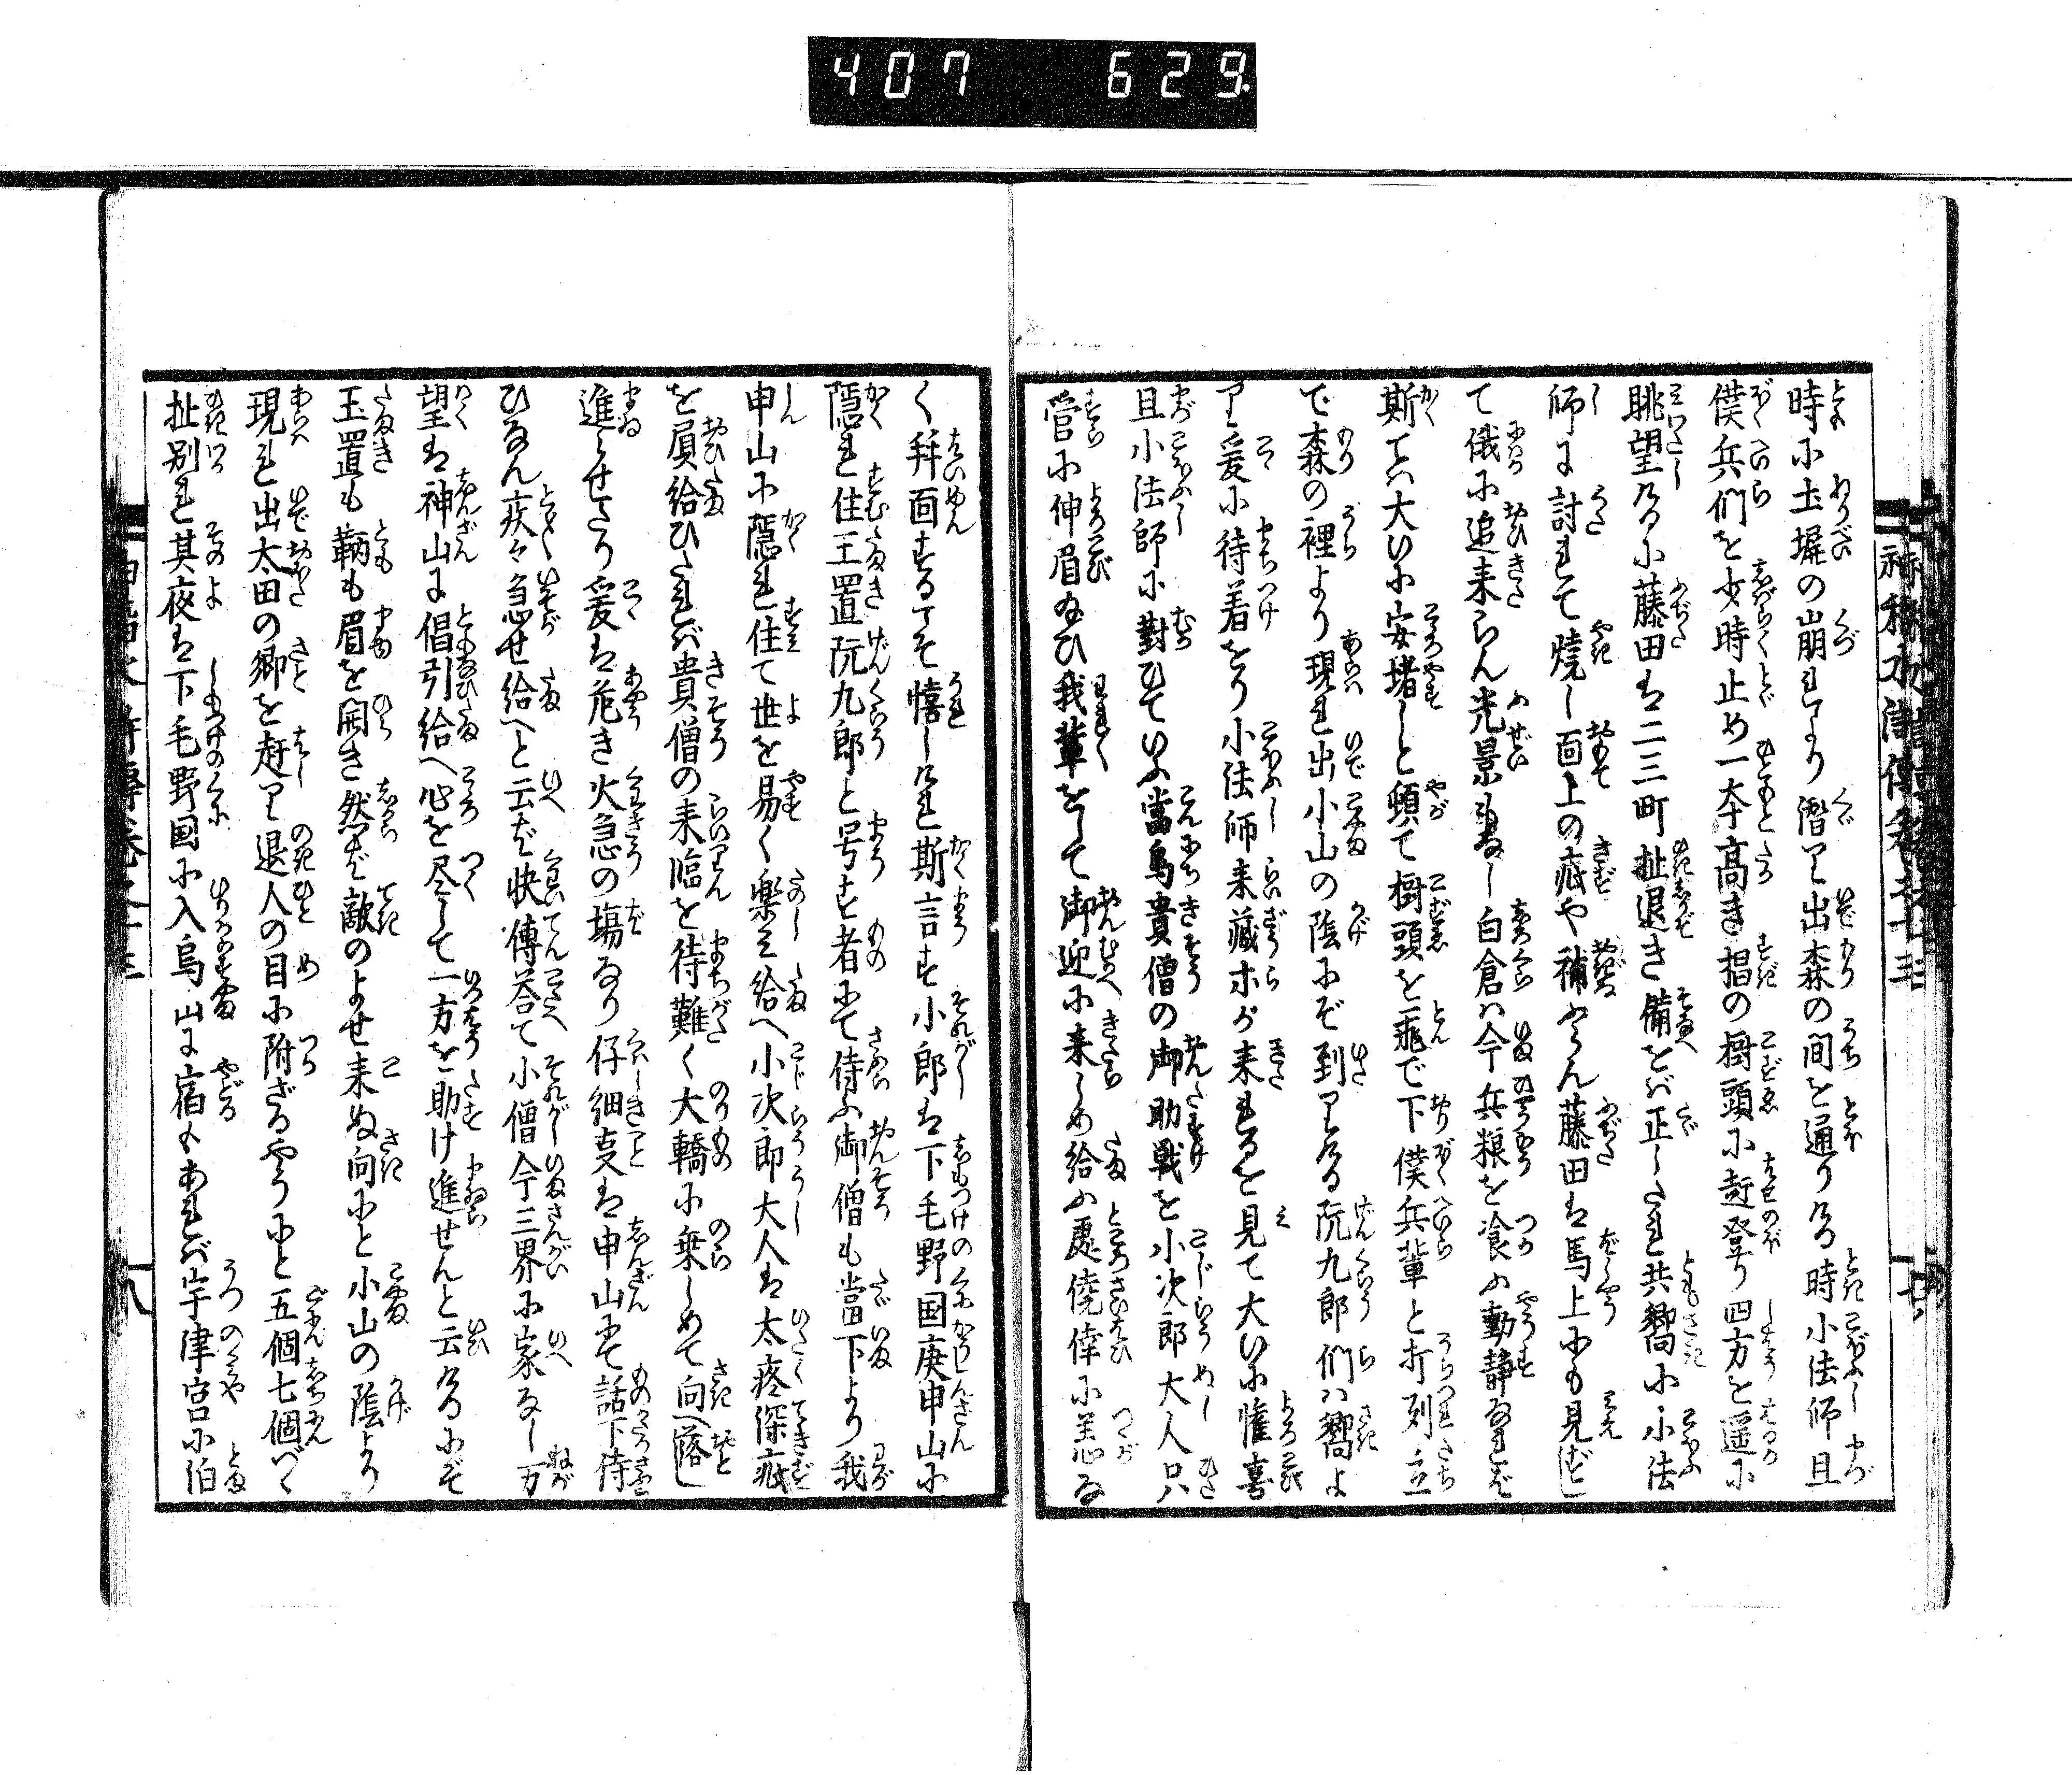 407 629.
時小土塀の崩れより潜りて出森の間を通りける時小法師且
僕兵們を少時止め一本高き椙の樹頭に赶登り四方を遥に
眺望けるに藤田は二三町扯退き備をば正したれ共嚮に小法
師に討れて焼し面上の疵や補ひけん藤田は馬上にも見ず
て俄に追来らん光景もなし白倉は今兵粮を飡ふ動静なれば
斯ては大いに安堵しと頓て樹頭を飛で下僕兵輩と打列立
で森の裡より現れ出小山の陰にぞ到りける阮九郎們は嚮よ
り爰に待着をり小法師来蔵ホが来れるを見て大いに懽喜
且小法師に對ひていふ當鳥貴僧の御助戦を小次郎大人只
管に伸眉給ひ我輩をして御迎に来しめ給ふ處僥倖に恙な
く拜面するこそ憘しけれ斯言す小郎は下毛野国庚申山に
隠れ住玉置阮九郎と号す者にて侍ふ御僧も當下より我
申山に隠れ住て世を易く楽み給へ小次郎大人は太疼深疵
を屓給ひたれば貴僧の来臨を待難く大轎に乗しめて向へ落し
進らせたり爰は危き火急の場なり仔細支は申山にて話下侍
ひなん疾々急せ給へと云ば快傳荅て小僧今三界に家なし万
望は神山に倡引給へ心を尽して一方を助け進せんと云けるにぞ
玉置も鞆も眉を開き然ば敵のよせ来ぬ向にと小山の陰より
現れ出太田の郷を赶り退人の目に附ざるやうにと五個七個づく
扯别れ其夜は下毛野国に入烏山に宿もあれば宇津宮に泊